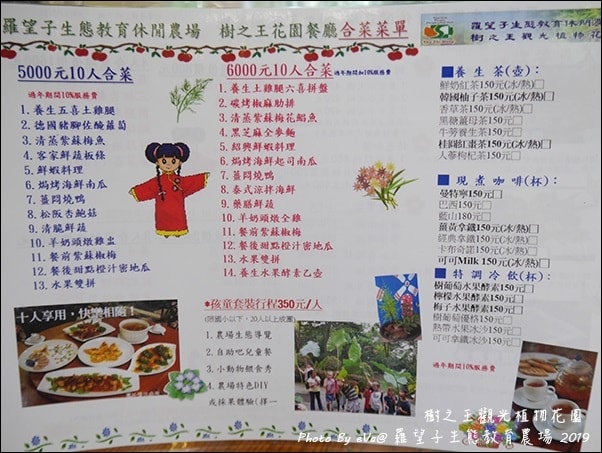 羅望子生態教育休閒農場 樹之王花園餐廳合菜菜單
羅望子生態教育休閒農
樹之王觀光植物花
5000元10人合菜 過年期間10%服務費
1. 養生五喜土雞腿
2. 德國豬腳佐酸蘿蔔
3. 清蒸紫蘇梅魚
4. 客家鮮蔬板條
5. 鮮蝦料理
6. 焗烤海鮮南瓜
7. 薑悶燒鴨
8. 松阪杏鮑菇
9. 清脆鮮蔬
10. 羊奶頭燉雞盅
11. 餐前紫蘇椒梅
12. 餐後甜點橙汁密地瓜
13. 水果雙拼
6000元10人合菜 過年期間加10%服務費
1. 養生土雞腿六喜拼盤
2. 碳烤椒麻肋排
3. 清蒸紫蘇梅花鱸魚
4. 黑芝麻全麥麵
5. 紹興鮮蝦料理
6. 焗烤海鮮起司南瓜
7. 薑悶燒鴨
8. 泰式涼拌海鮮
9. 藥膳鮮蔬
10. 羊奶頭燉全雞
11. 餐前紫蘇椒梅
12. 餐後甜點橙汁密地瓜
13. 水果雙拼
14. 養生水果酵素乙壺
*孩童套裝行程350元/人
(限國小以下、20人以上成團)
1. 農場生態導覽
2. 自助吧兒童餐
3. 小動物餵食秀
4. 農場特色DIY
或採果體驗(擇一
■養生茶(壺):
鮮奶紅茶150元(冰/熱)□
韓國柚子茶150元(冰/熱)□
香草茶150元(冰/熱)□
黑糖薑母茶150元□
牛蒡養生茶150元□
桂圓紅棗茶150元(冰/熱)□
人蔘枸杞茶150元□
■現煮咖啡(杯):
曼特寧150元□
巴西150元□
藍山180元□
薑黃拿鐵150元(冰/熱)□
經典拿鐵150元(冰/熱)□
卡布奇諾150元(冰/熱)□
可可Milk 150元(冰/熱)□
■特調冷飲(杯):
樹葡萄水果酵素150元□
檸檬水果酵素150元□
梅子水果酵素150元□
樹葡萄優格150元□
熱帶水果冰沙150元□
可可拿鐵冰沙150元□
過年期間10%服務費
十人享用,快樂相隨!
樹之王觀光植物花園
Photo By eva@ 羅望子生態教育農場 2019